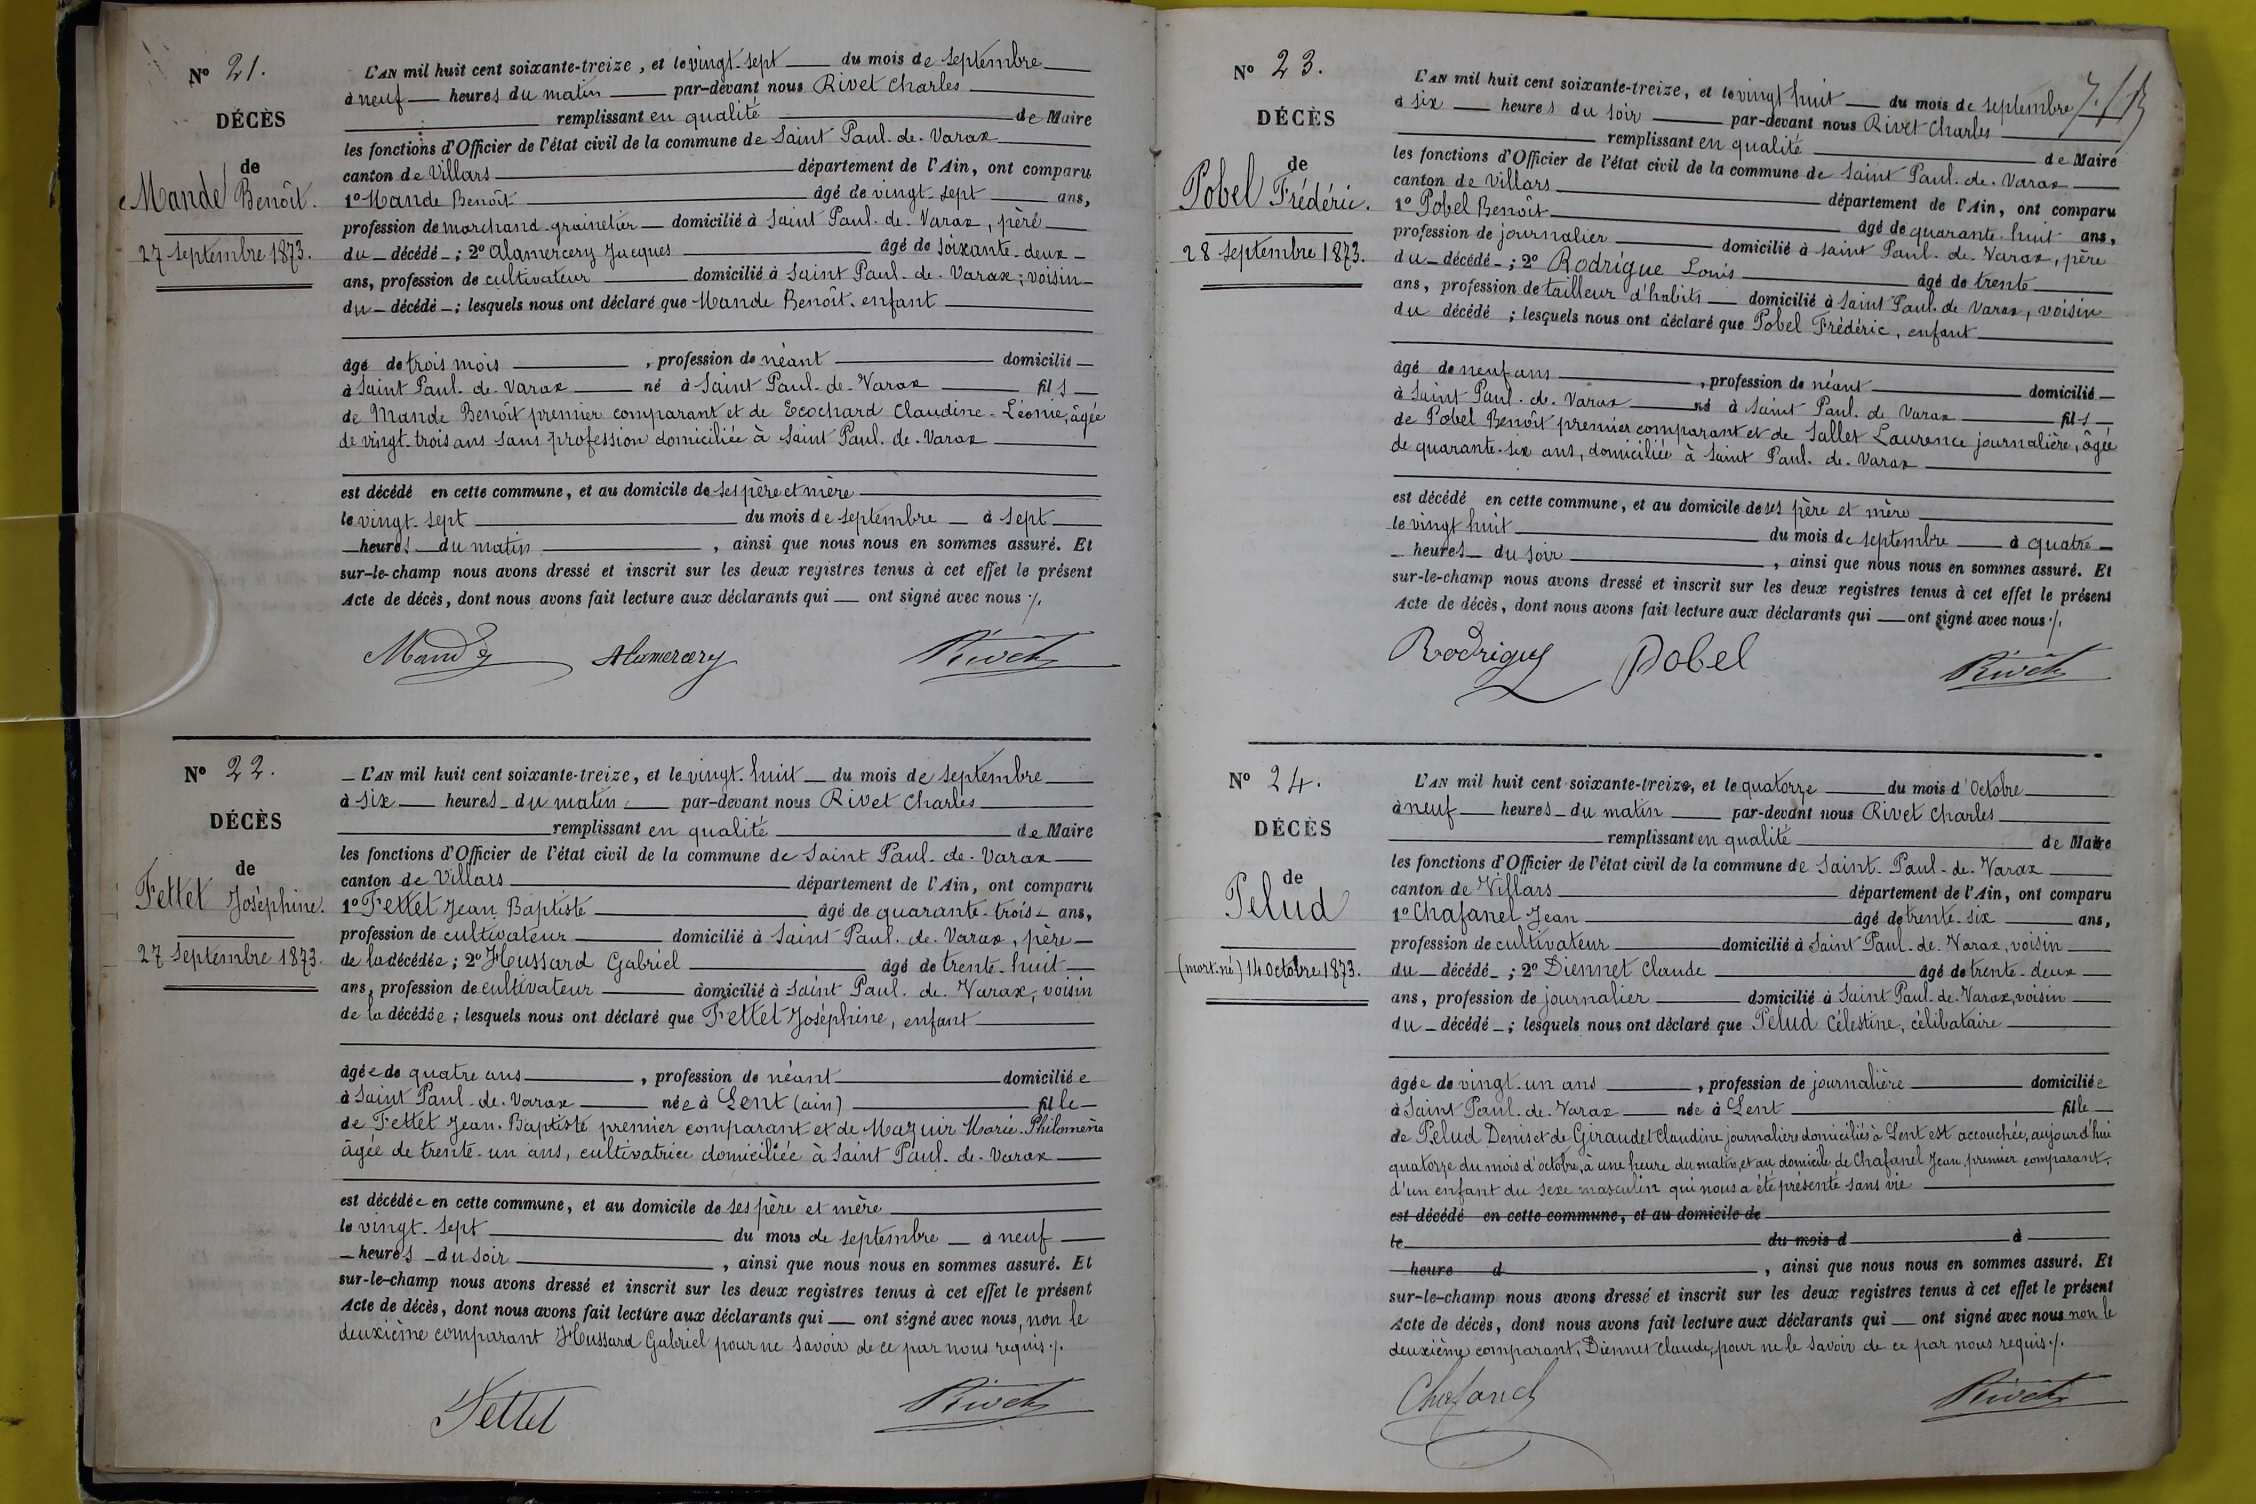 N° 21.
DÉCÈS
de
Mande Benoît.
27 septembre 1873.
L'AN mil huit cent soixante-treize, et le vingt-sept du mois de septembre
à neuf heures du matin par-devant nous Rivet Charles
remplissant en qualité de Maire
les fonctions d'Officier de l'état civil de la commune de Saint Paul-de-Varax
canton de Villars département de l'Ain, ont comparu
1° Mande Benoît âgé de vingt-sept ans,
profession de marchand-grainetier domicilié à Saint Paul-de-Varax, père
du décédé ; 2° Alamercery Jacques âgé de soixante-deux
ans, profession de cultivateur domicilié à Saint Paul-de-Varax, voisin
du décédé ; lesquels nous ont déclaré que Mande Benoît, enfant
âgé de trois mois, profession de néant domicilié
à Saint Paul-de-Varax né à Saint Paul-de-Varax fils
de Mande Benoît premier comparant et de Ecochard Claudine-Léonie, âgée
de vingt-trois ans sans profession domiciliée à Saint Paul-de-Varax
est décédé en cette commune, et au domicile de ses père et mère
le vingt-sept du mois de septembre à sept
heures du matin, ainsi que nous nous en sommes assuré. Et
sur-le-champ nous avons dressé et inscrit sur les deux registres tenus à cet effet le présent
Acte de décès, dont nous avons fait lecture aux déclarants qui ont signé avec nous ./.
Alamercery Rivet
N° 22.
DÉCÈS
de
Fettet Joséphine.
27 septembre 1873.
L'AN mil huit cent soixante-treize, et le vingt-huit du mois de septembre
à six heures du matin par-devant nous Rivet Charles
remplissant en qualité de Maire
les fonctions d'Officier de l'état civil de la commune de Saint Paul-de-Varax
canton de Villars département de l'Ain, ont comparu
1° Fettet Jean Baptiste âgé de quarante-trois ans,
profession de cultivateur domicilié à Saint Paul-de-Varax, père
de la décédée ; 2° Hussard Gabriel âgé de trente-huit
ans, profession de cultivateur domicilié à Saint Paul-de-Varax, voisin
de la décédée ; lesquels nous ont déclaré que Fettet Joséphine, enfant
âgée de quatre ans, profession de néant domiciliée
à Saint Paul-de-Varax née à Lent (ain) fille
de Fettet Jean-Baptiste premier comparant et de Mazuir Marie-Philomène
âgée de trente-un ans, cultivatrice domiciliée à Saint Paul-de-Varax
est décédée en cette commune, et au domicile de ses père et mère
le vingt-sept du mois de septembre à neuf
heures du soir, ainsi que nous nous en sommes assuré. Et
sur-le-champ nous avons dressé et inscrit sur les deux registres tenus à cet effet le présent
Acte de décès, dont nous avons fait lecture aux déclarants qui ont signé avec nous, non le
deuxième comparant Hussard Gabriel pour ne savoir de ce par nous requis ./.
Fettet Rivet
N° 23.
DÉCÈS
de
Pobel Frédéric.
28 septembre 1873.
L'AN mil huit cent soixante-treize, et le vingt huit du mois de septembre
à six heures du soir par-devant nous Rivet Charles
remplissant en qualité de Maire
les fonctions d'Officier de l'état civil de la commune de Saint Paul-de-Varax
canton de Villars département de l'Ain, ont comparu
1° Pobel Benoît âgé de quarante-huit ans,
profession de journalier domicilié à Saint Paul-de-Varax, père
du décédé ; 2° Rodrigue Louis âgé de trente
ans, profession de tailleur d'habits domicilié à Saint Paul-de-Varax, voisin
du décédé ; lesquels nous ont déclaré que Pobel Frédéric, enfant
âgé de neuf ans, profession de néant domicilié
à Saint Paul-de-Varax né à Saint Paul-de-Varax fils
de Pobel Benoît premier comparant et de Sallet Laurence journalière, âgée
de quarante-six ans, domiciliée à Saint Paul-de-Varax
est décédé en cette commune, et au domicile de ses père et mère
le vingt huit du mois de septembre à quatre
heures du soir, ainsi que nous nous en sommes assuré. Et
sur-le-champ nous avons dressé et inscrit sur les deux registres tenus à cet effet le présent
Acte de décès, dont nous avons fait lecture aux déclarants qui ont signé avec nous ./.
Rodrigue Pobel Rivet
N° 24.
DÉCÈS
de
Pelud
(mort-né) 14 octobre 1873.
L'AN mil huit cent soixante-treize, et le quatorze du mois d'octobre
à neuf heures du matin par-devant nous Rivet Charles
remplissant en qualité de Maire
les fonctions d'Officier de l'état civil de la commune de Saint-Paul-de-Varax
canton de Villars département de l'Ain, ont comparu
1° Chafanel Jean âgé de trente-six ans,
profession de cultivateur domicilié à Saint Paul-de-Varax, voisin
du décédé ; 2° Diennet Claude âgé de trente-deux
ans, profession de journalier domicilié à Saint Paul-de-Varax, voisin
du décédé ; lesquels nous ont déclaré que Pelud Célestine, célibataire
âgée de vingt-un ans, profession de journalière domiciliée
à Saint Paul-de-Varax née à Lent fille
de Pelud Denis et de Giraudet Claudine journaliers domiciliés à Lent est accouchée, aujourd'hui
quatorze du mois d'octobre, à une heure du matin, et au domicile de Chafanel Jean, premier comparant,
d'un enfant du sexe masculin qui nous a été présenté sans vie
est décédé en cette commune, et au domicile de
le du mois d à
heure d, ainsi que nous nous en sommes assuré. Et
sur-le-champ nous avons dressé et inscrit sur les deux registres tenus à cet effet le présent
Acte de décès, dont nous avons fait lecture aux déclarants qui ont signé avec nous non le
deuxième comparant, Diennet Claude, pour ne le savoir de ce par nous requis ./.
Chafanel Rivet